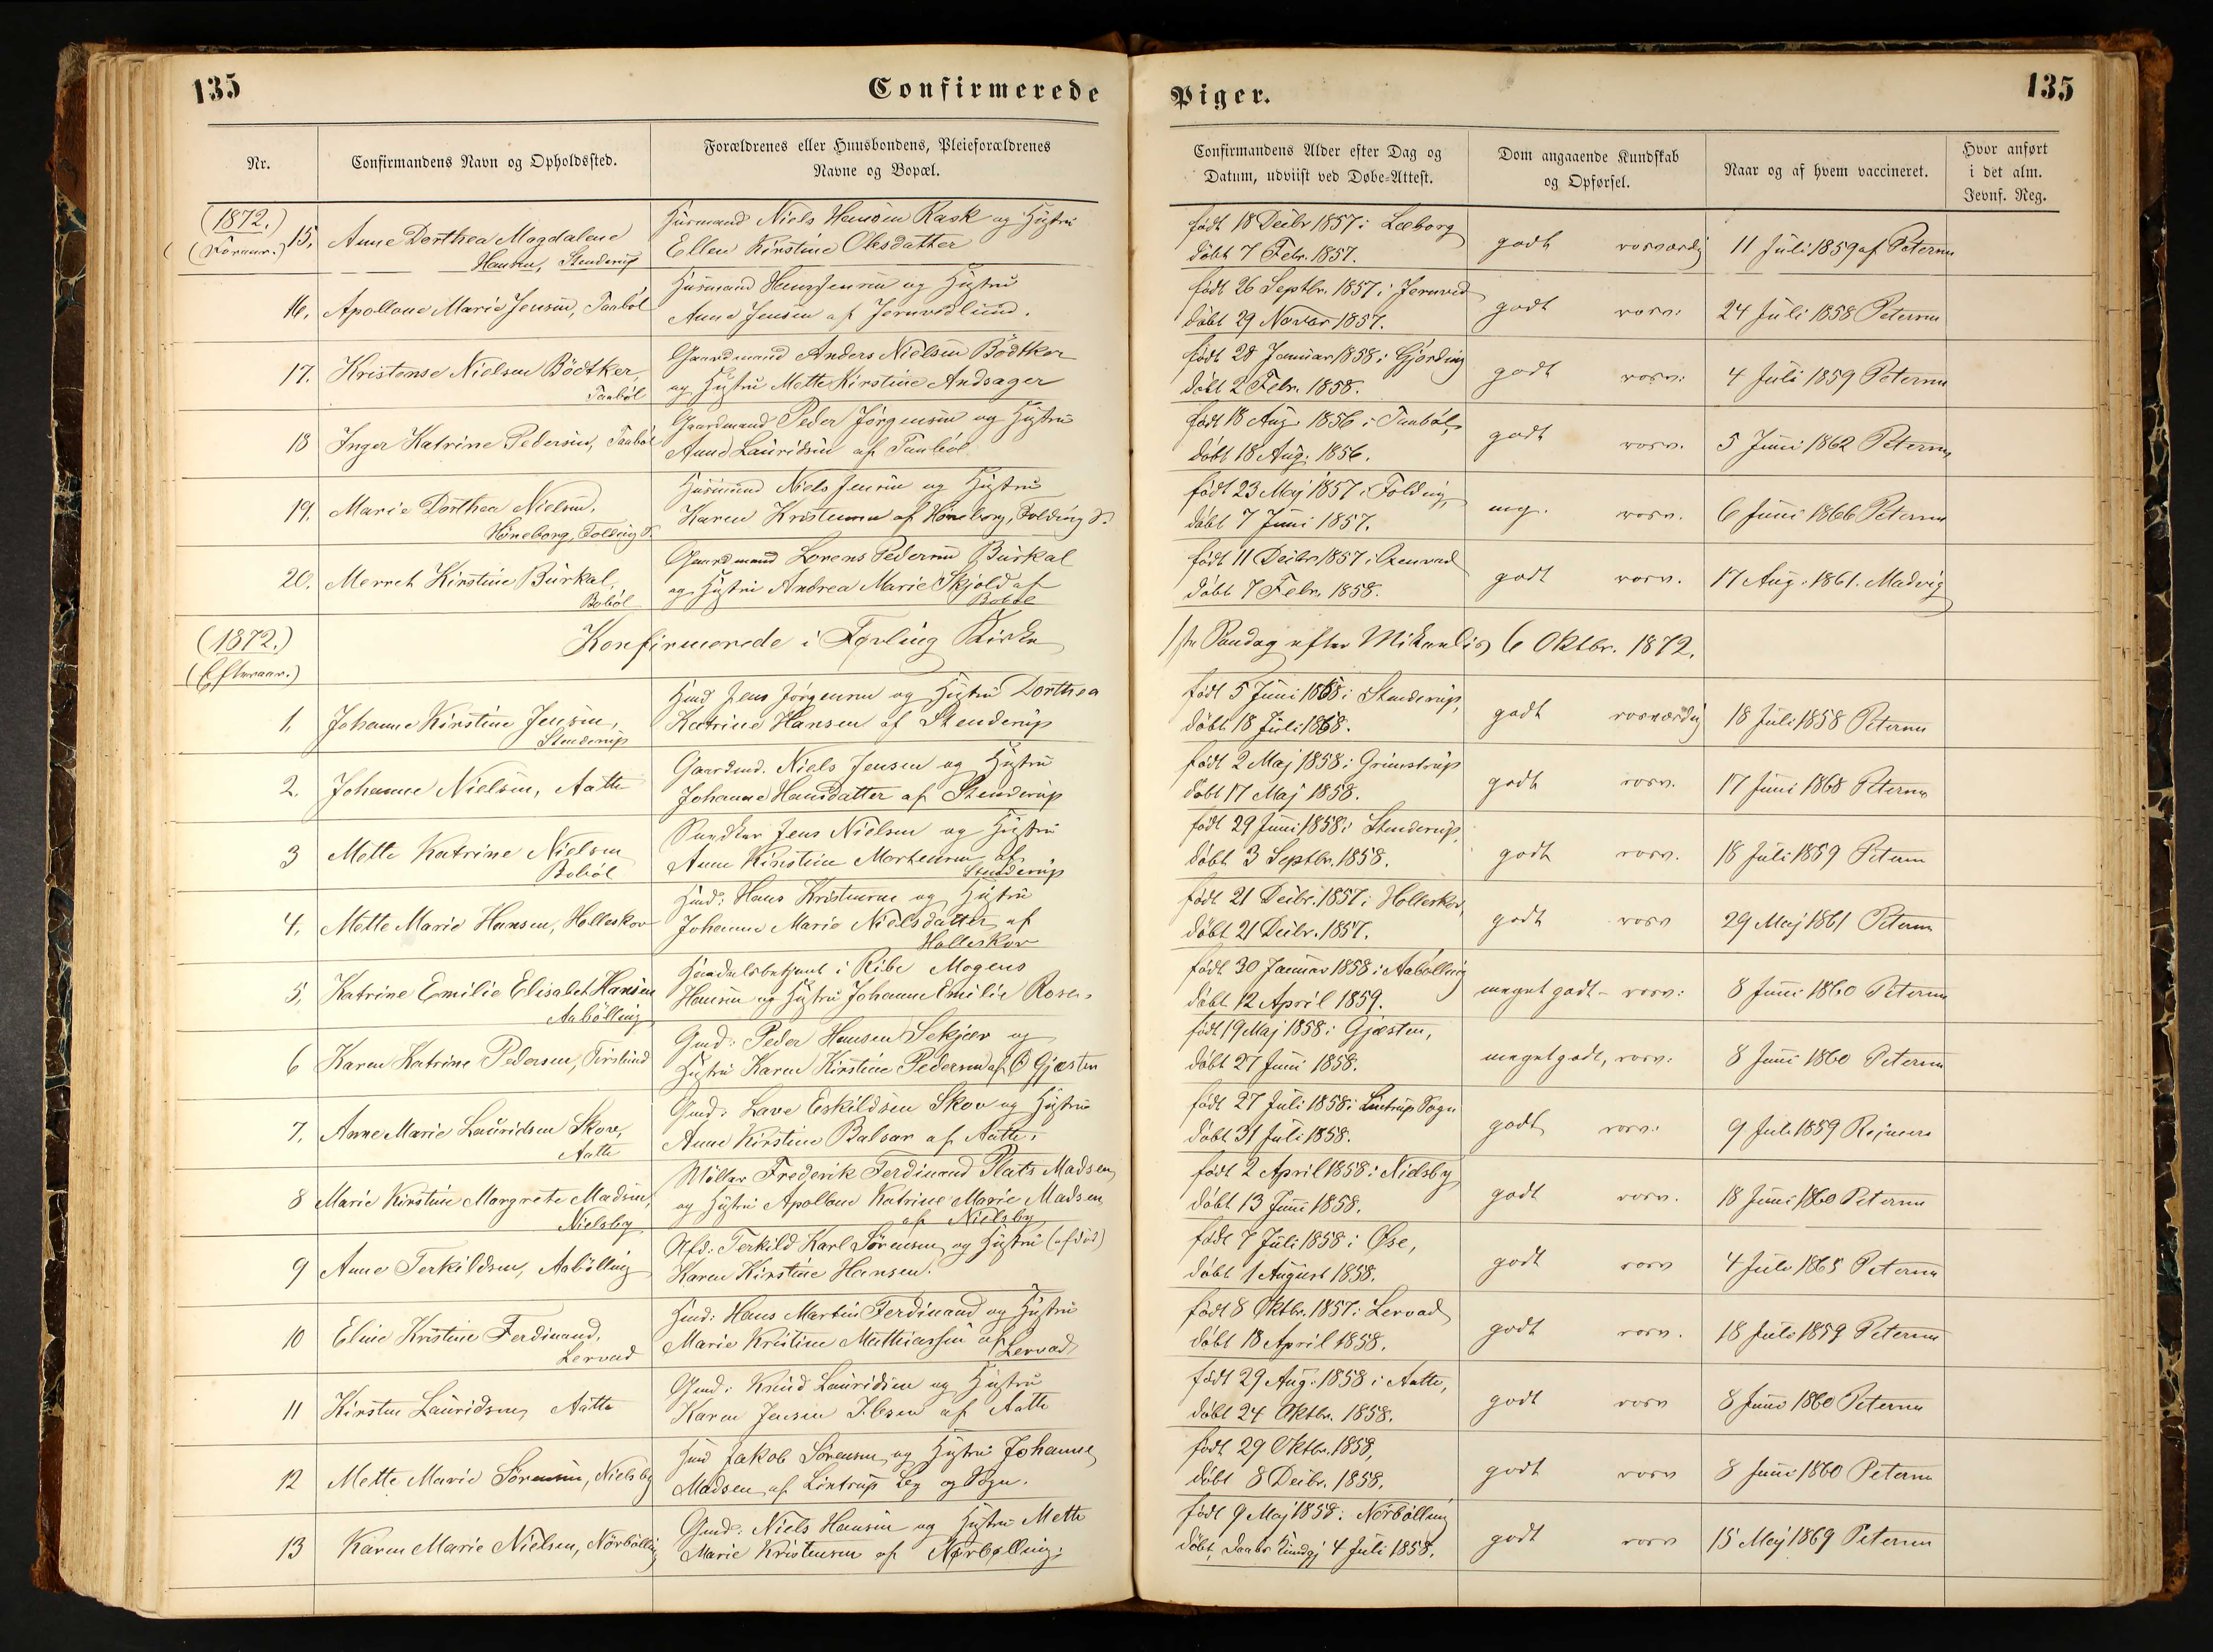 135
Confirmerede
Piger.
135
Nr.
Confirmandens Navn og Opholdssted.
Forældrenes eller Huusbondens, Pleieforældrenes
Navne og Bopæl.
Confirmandens Alder efter Dag og
Datum, udviist ved Døbe-Attest.
Dom angaaende Kundskab
og Opførsel.
Naar og af hvem vaccineret.
Hvor anført
i det alm.
Jevnf. Reg.
(1872.)
(Foraar.)
15. Anne Dorthea Magdalene
Hansen, Stenderup
Husmand Niels Hansen Rask og Hustru
Ellen Kirstine Olesdatter
født 18 Decbr 1857 i Læborg
døbt 7 Febr. 1857.
godt roesværdig
11 Juli 1859 af Petersen
16. Apollone Marie Jensen, Taabøl
Husmand Hans Jensen og Hustru
Anne Jensen af Jernvedlund.
født 26 Septbr. 1857 i Jernved
døbt 29 Novbr 1857.
godt roesv:
24 Juli 1858 Petersen
17. Kristense Nielsen Bödtker
Taabøl
Gaardmand Anders Nielsen Bödtker
og Hustru Mette Kirstine Andsager
født 28 Januar 1858 i Gjørding
døbt 2 Febr. 1858.
godt roesv:
4 Juli 1859 Petersen
18 Inger Katrine Pedersen, Taabøl
Gaardmand Peder Jørgensen og Hustru
Anne Lauridsen af Taabøl
født 18 Aug. 1856 i Taabøl,
døbt 18 Aug. 1856.
godt roesv.
5 Juni 1862 Petersen
19. Marie Dorthea Nielsen,
Höneborg, Folding S.
Husmand Niels Jensen og Hustru
Karen Kristensen af Höneborg, Folding S.
født 23 Maj 1857 i Folding,
døbt 7 Juni 1857.
mg. roesv.
6 Juni 1866 Petersen
20. Merret Kirstine Burkal,
Bobøl
Gaardmand Lorens Pedersen Burkal
og Hustru Andrea Marie Skjold af
Bobøl
født 11 Decbr 1857 i Oxenvad
døbt 7 Febr. 1858.
godt roesv.
17 Aug. 1861. Madvig
(1872.)
(Efteraar.)
Konfirmerede i Føvling Kirke
1ste Søndag efter Mikaelis 6 Oktbr. 1872.
1. Johanne Kirstine Jensen,
Stenderup
Hmd Jens Jørgensen og Hustru Dorthea
Katrine Hansen af Stenderup
født 5 Juni 1858 i Stenderup,
døbt 18 Juli 1858.
godt roesværdig
18 Juli 1858 Petersen
2. Johanne Nielsen, Aatte
Gaardmd. Niels Jensen og Hustru
Johanne Hansdatter af Stenderup
født 2 Maj 1858 i Grimstrup
døbt 17 Maj 1858.
godt roesv.
17 Juni 1868 Petersen
3 Mette Katrine Nielsen
Bobøl
Jens Nielsen og Hustru
Anne Kirstine Mortensen af
Stenderup
født 29 Juni 1858 i Stenderup,
døbt 3 Septbr. 1858.
godt roesv.
18 Juli 1859 Petersen
4. Mette Marie Hansen, Holleskov
Hmd: Hans Kristensen og Hustru
Johanne Marie Nielsdatter af
Holleskov
født 21 Decbr. 1857 i Holleskov,
døbt 21 Decbr. 1857.
godt roesv
29 Maj 1861 Petersen
5. Katrine Emilie Elisabet Hansen
Aabølling
Handelsbetjent i Ribe Mogens
Hansen og Hustru Johanne Emilie Rosen.
født 30 Januar 1858 i Aabølling
døbt 12 April 1859.
meget godt - roesv:
8 Juni 1860 Petersen
6 Karen Katrine Pedersen, Tirslund
Gmd: Peder Hansen Sekjær og
Hustru Karen Kirstine Pedersen af Gjesten
født 19 Maj 1858 i Gjesten,
døbt 27 Juni 1858.
meget godt, roesv:
8 Juni 1860 Petersen
7. Anne Marie Lauridsen Skov,
Aatte
Gmd: Lave Eskildsen Skov og Hustru
Anne Kirstine Balsar af Aatte.
født 27 Juli 1858 i Lintrup Sogn
døbt 31 Juli 1858.
godt roesv:
9 Juli 1859
8 Marie Kirstine Margrete Madsen,
Nielsby
Møller Frederik Ferdinand Plats Madsen
og Hustru Apollone Katrine Marie Madsen
af Nielsby
født 2 April 1858 i Nielsby
døbt 13 Juni 1858.
godt roesv.
18 Juni 1860 Petersen
9 Anne Terkildsen, Aabølling
Afd: Terkild Karl Sørensen og Hustru (afdød)
Karen Kirstine Hansen.
født 7 Juli 1858 i Øse,
døbt 1 August 1858.
godt roesv
4 Juli 1865 Petersen
10 Eline Kristine Ferdinand,
Lervad
Hmd: Hans Martin Ferdinand og Hustru
Marie Kristine Mathiassen af Lervad
født 8 Oktbr. 1857 i Lervad
døbt 18 April 1858.
godt roesv.
18 Juli 1859 Petersen
11 Kirsten Lauridsen, Aatte
Gmd: Knud Lauridsen og Hustru
Karen Jensen Ibsen af Aatte
født 29 Aug. 1858 i Aatte,
døbt 24 Oktbr. 1858.
godt roesv
8 Juni 1860 Petersen
12 Mette Marie Sørensen, Nielsby
Hmd Jakob Sørensen og Hustru Johanne
Madsen af Lintrup By og Sogn.
født 29 Oktbr. 1858,
døbt 8 Decbr. 1858.
godt roesv
8 Juni 1860 Petersen
13 Karen Marie Nielsen, Nørbølling
Gmd: Niels Hansen og Hustru Mette
Marie Kristensen af Nørbølling.
født 9 Maj 1858 i Nørbølling
døbt, Daabs kundgj 4 Juli 1858.
godt roesv
15 Maj 1869 Petersen